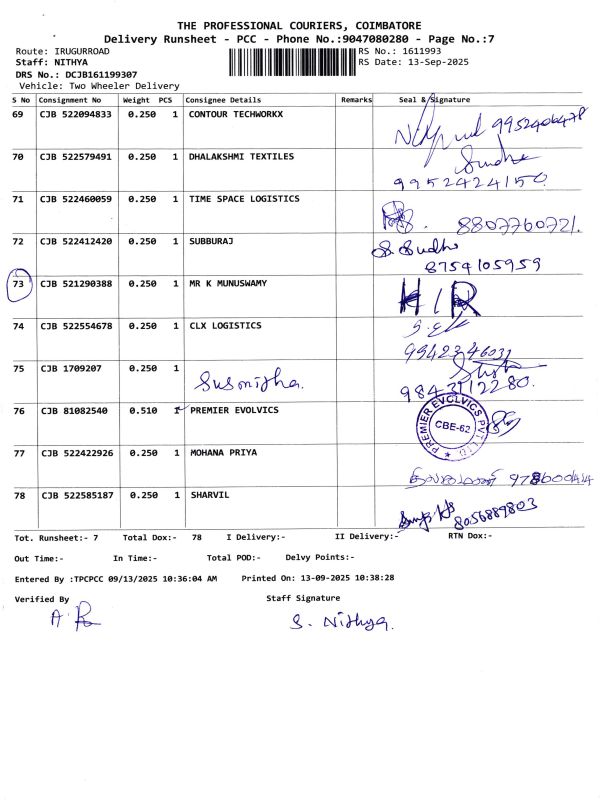 THE PROFESSIONAL COURIERS, COIMBATORE
Delivery Runsheet - PCC - Phone No.:9047080280 - Page No.:7
Route: IRUGURROAD RS No.: 1611993
Staff: NITHYA RS Date: 13-Sep-2025
DRS No.: DCJB161199307
Vehicle: Two Wheeler Delivery
S No Consignment No Weight PCS Consignee Details Remarks Seal & Signature
69 CJB 522094833 0.250 1 CONTOUR TECHWORKX
70 CJB 522579491 0.250 1 DHALAKSHMI TEXTILES Sudha
9952424150
71 CJB 522460059 0.250 1 TIME SPACE LOGISTICS 8807760721.
72 CJB 522412420 0.250 1 SUBBURAJ S. Sudha
8754105959
73 CJB 521290388 0.250 1 MR K MUNUSWAMY H/R
74 CJB 522554678 0.250 1 CLX LOGISTICS
9942346031
75 CJB 1709207 0.250 1 Susmitha.
9843112280.
76 CJB 81082540 0.510 1 PREMIER EVOLVICS PREMIER EVOLVICS PVT. LTD. CBE-62
77 CJB 522422926 0.250 1 MOHANA PRIYA
78 CJB 522585187 0.250 1 SHARVIL 8056889803
Tot. Runsheet:- 7 Total Dox:- 78 I Delivery:- II Delivery:- RTN Dox:-
Out Time:- In Time:- Total POD:- Delvy Points:-
Entered By :TPCPCC 09/13/2025 10:36:04 AM Printed On: 13-09-2025 10:38:28
Verified By Staff Signature
S. Nithya.